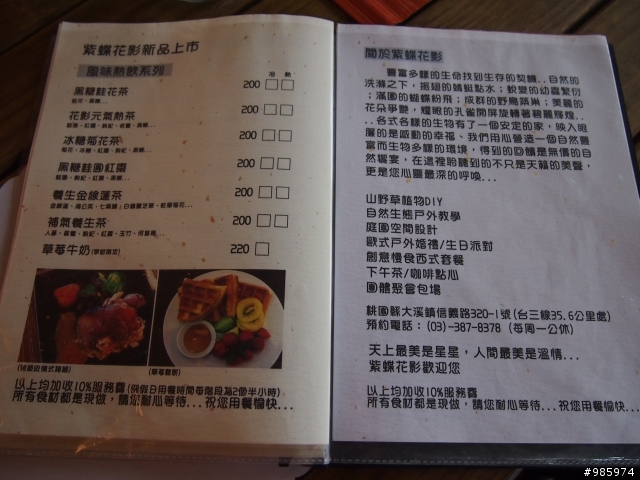 紫蝶花影新品上市
風味熱飲系列
冷 熱
黑糖桂花茶 200
花影元氣熱茶 200
冰糖菊花茶 200
黑糖桂圓紅棗 200
養生金線蓮茶 200
補氣養生茶 200
草莓牛奶(季節限定) 220
以上均加收10%服務費(例假日用餐時間每階段為2個半小時)
所有食材都是現做，請您耐心等待...祝您用餐愉快...
關於紫蝶花影
豐富多樣的生命找到生存的契機..自然的
洗滌之下，振翅的蜻蜓點水；蛻變的幼蟲繁衍
；滿園的蝴蝶紛飛；成群的野鳥築巢；美麗的
花朵爭艷，耀眼的孔雀開屏旋轉著碧麗輝煌..
..各式各樣的生物有了一個安定的家，映入眼
簾的是感動的幸福。我們用心營造一個自然豐
富而生物多樣的環境，得到的回饋是無價的自
然饗宴，在這裡聆聽到的不只是天籟的美聲，
更是您心靈最深的呼喚...
山野草植物DIY
自然生態戶外教學
庭園空間設計
歐式戶外婚禮/生日派對
創意慢食西式套餐
下午茶/咖啡點心
團體聚會包場
桃園縣大溪鎮信義路320-1號(台三線35.6公里處)
預約電話：(03)-387-8378 (每周一公休)
天上最美是星星，人間最美是溫情...
紫蝶花影歡迎您
以上均加收10%服務費
所有食材都是現做，請您耐心等待...祝您用餐愉快...
#985974